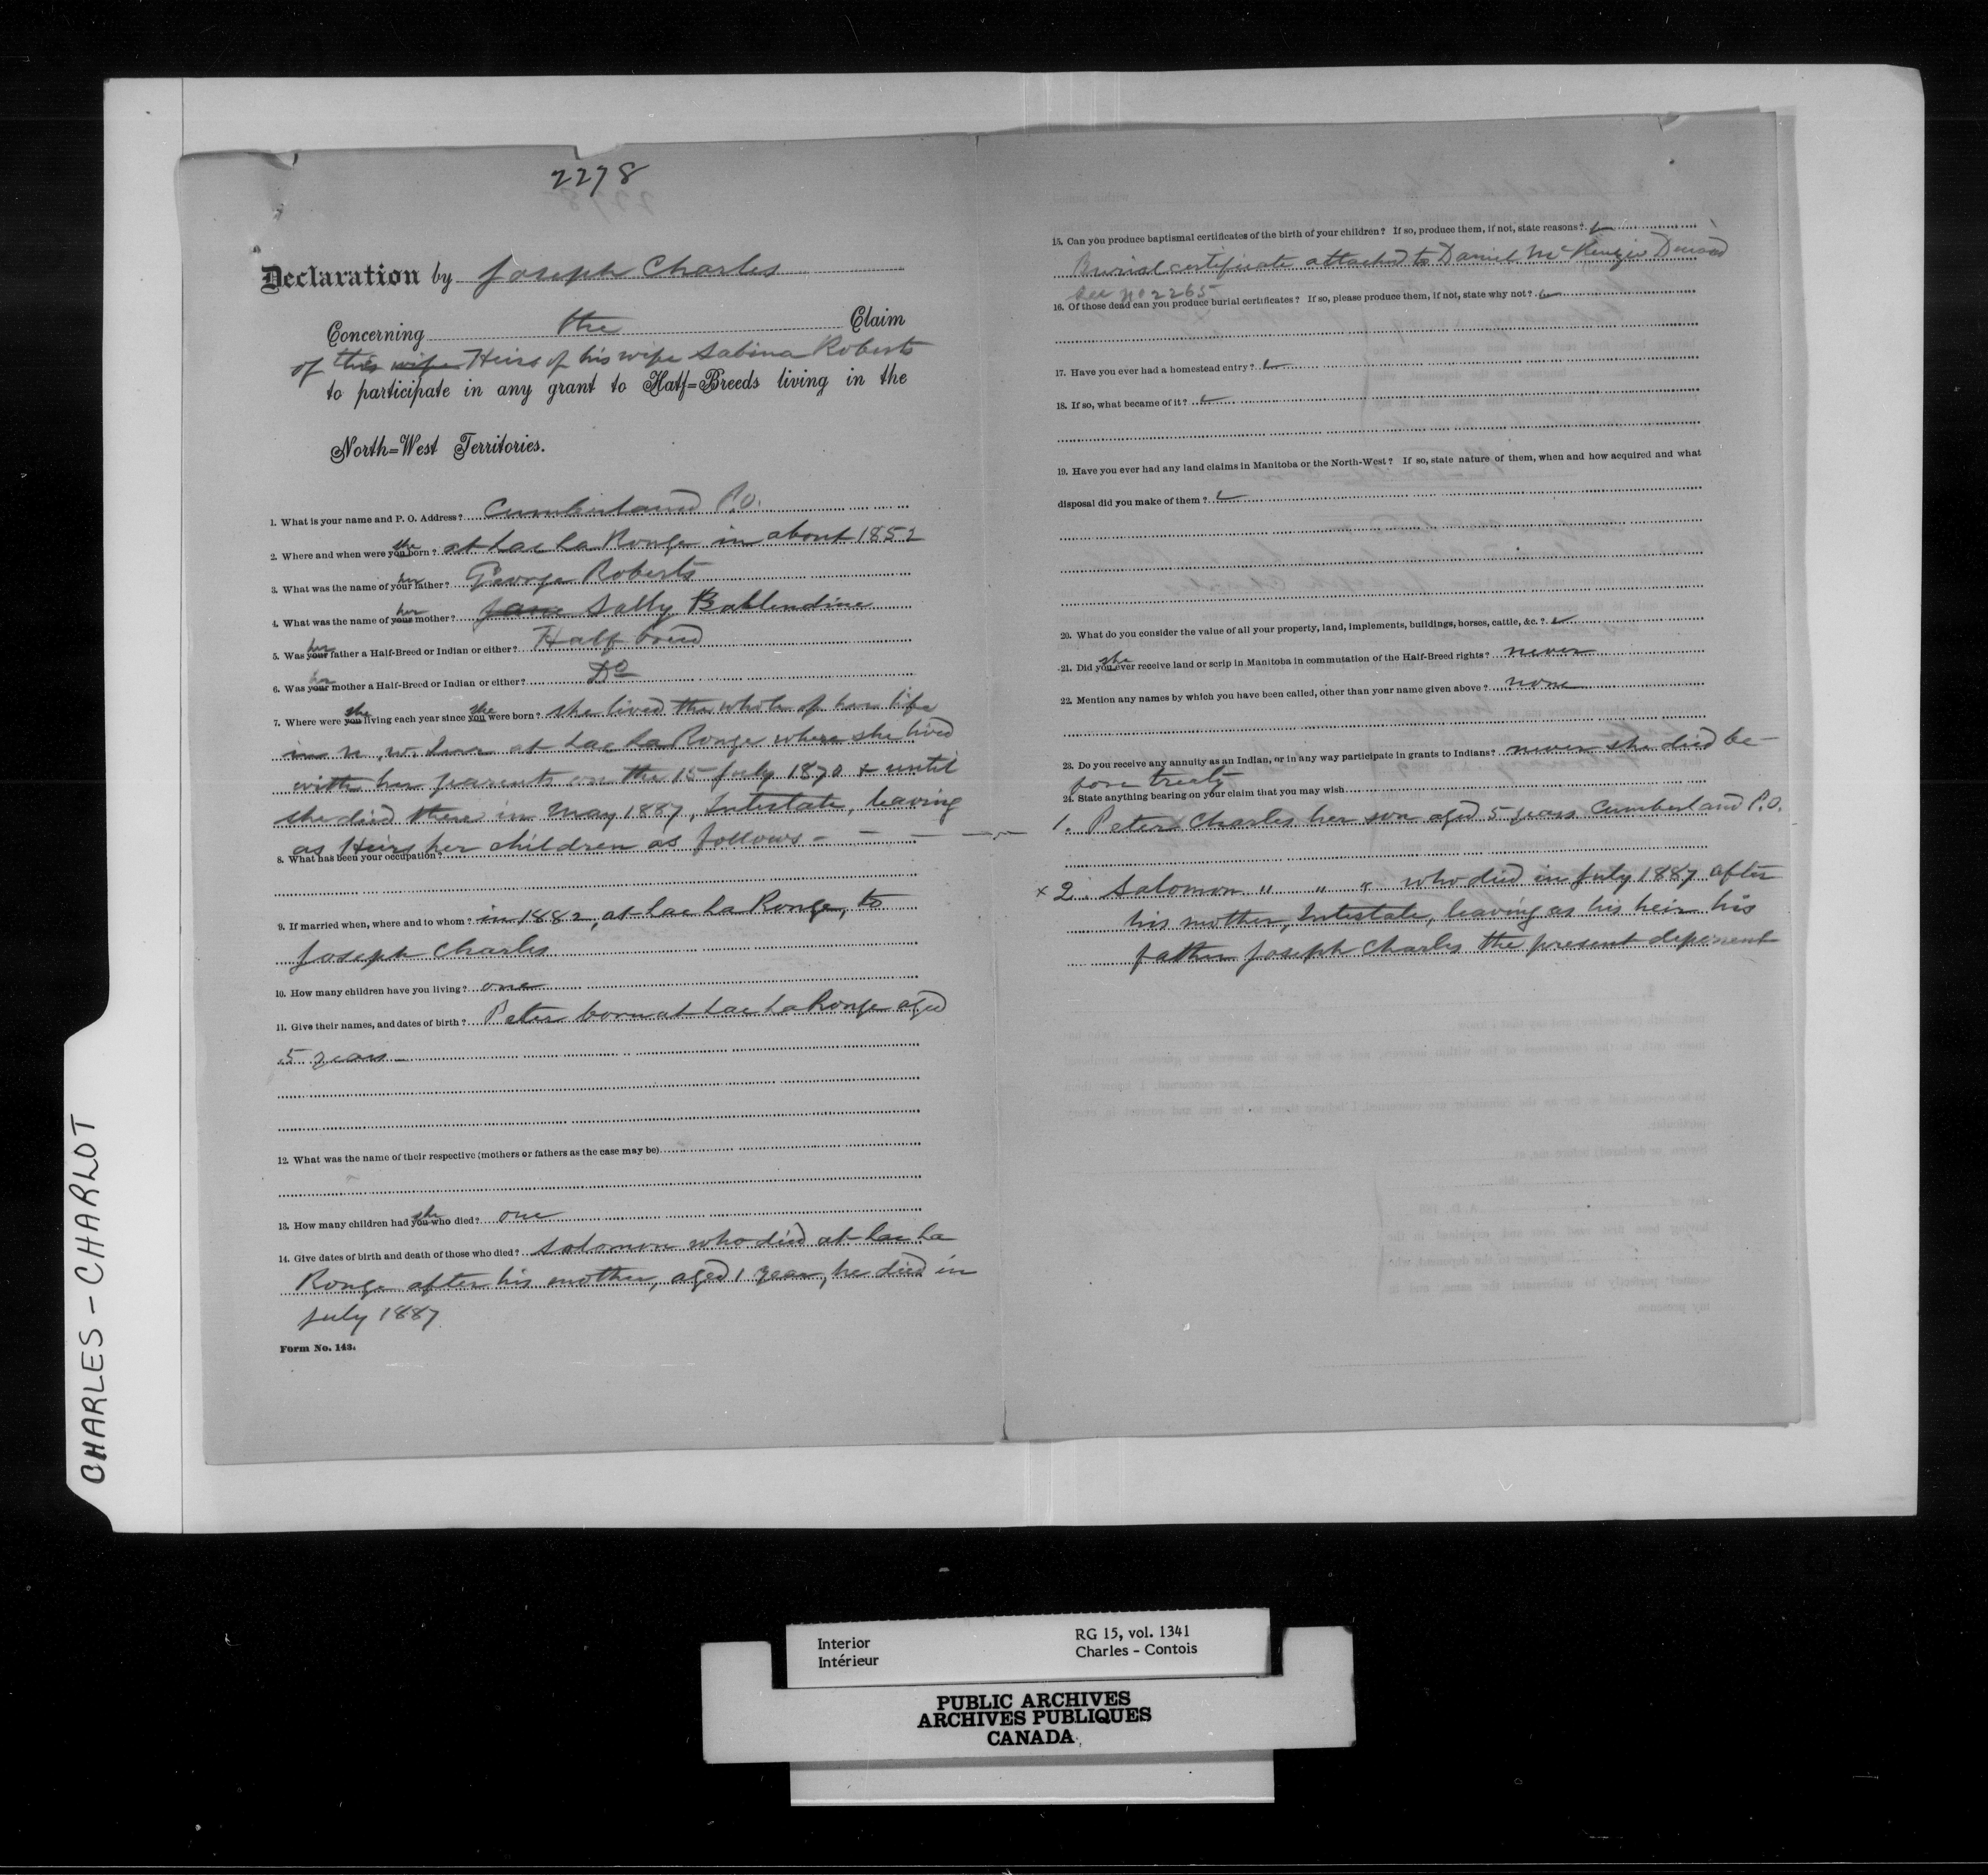 2278
Declaration by Joseph Charles
Concerning the Claim
of this wife Heirs of his wife Sabina Roberts
to participate in any grant to Half=Breeds living in the
North=West Territories.
1. What is your name and P. O. Address? Cumberland P.O.
2. Where and when were you she born? at Lac La Ronge in about 1852
3. What was the name of your her father? George Roberts
4. What was the name of your her mother? Jane Sally Ballendine
5. Was your her father a Half-Breed or Indian or either? Half breed
6. Was your her mother a Half-Breed or Indian or either? Do
7. Where were you she living each year since you she were born? she lived the whole of her life
in N. W. Terr at Lac La Ronge where she lived
with her parents on the 15 July 1870 & until
she died there in May 1887, Intestate, leaving
as Heirs her children as follows -
8. What has been your occupation?
9. If married when, where and to whom? in 1882, at Lac La Ronge, to
Joseph Charles
10. How many children have you living? one
11. Give their names, and dates of birth? Peter born at Lac La Ronge aged
5 years
12. What was the name of their respective (mothers or fathers as the case may be)
13. How many children had you she who died? one
14. Give dates of birth and death of those who died? Solomon who died at Lac La
Ronge after his mother, aged 1 year, he died in
July 1887
Form No. 143.
15. Can you produce baptismal certificates of the birth of your children? If so, produce them, if not, state reasons?
Burial certificate attached to Daniel McKenzie
See No 2265
16. Of those dead can you produce burial certificates? If so, please produce them, if not, state why not?
17. Have you ever had a homestead entry?
18. If so, what became of it?
19. Have you ever had any land claims in Manitoba or the North-West? If so, state nature of them, when and how acquired and what
disposal did you make of them?
20. What do you consider the value of all your property, land, implements, buildings, horses, cattle, &c.?
21. Did you she ever receive land or scrip in Manitoba in commutation of the Half-Breed rights? never
22. Mention any names by which you have been called, other than your name given above? none
23. Do you receive any annuity as an Indian, or in any way participate in grants to Indians? never she died be-
fore treaty
24. State anything bearing on your claim that you may wish
1. Peter Charles her son aged 5 years Cumberland P.O.
x 2. Solomon " " " who died in July 1887 after
his mother, Intestate, leaving as his heir his
father Joseph Charles the present deponent
CHARLES - CHARLOT
Interior
Intérieur
RG 15, vol. 1341
Charles - Contois
PUBLIC ARCHIVES
ARCHIVES PUBLIQUES
CANADA